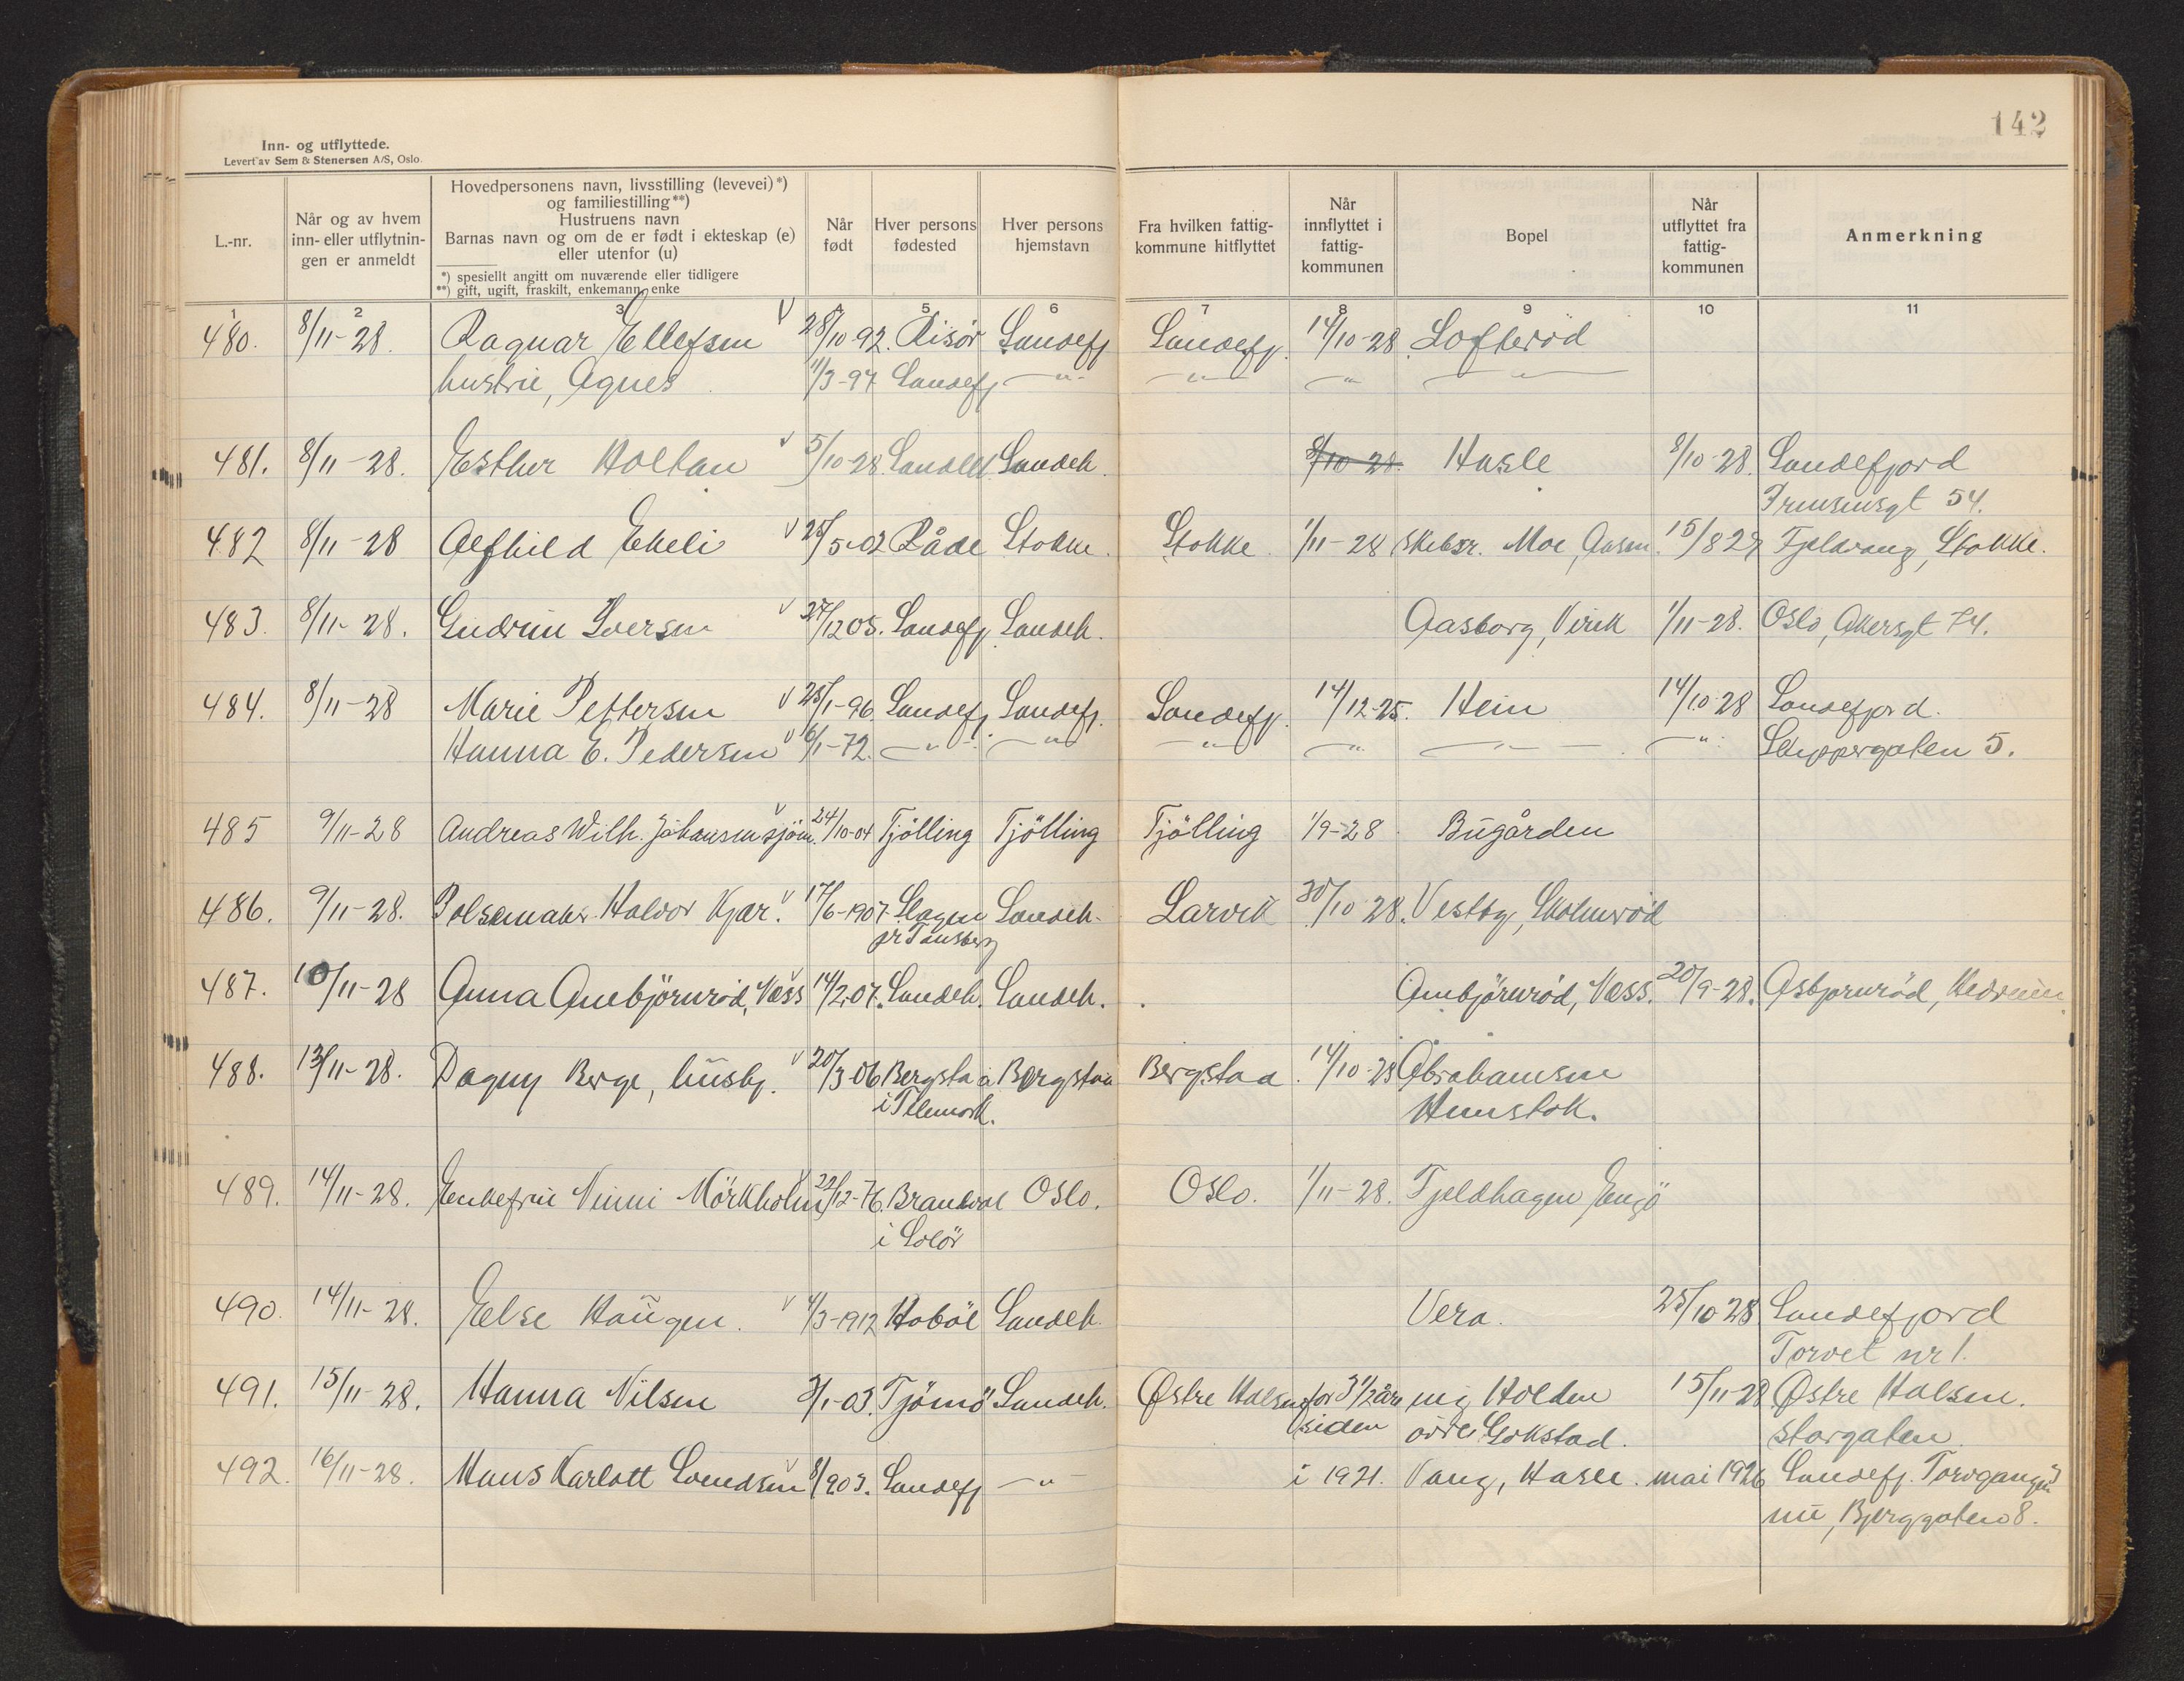 142
Inn- og utflyttede.
Levert av Sem & Stenersen A/S, Oslo.
L.-nr.
Når og av hvem inn- eller utflytnin- gen er anmeldt
Hovedpersonens navn, livsstilling (levevei)*)
og familiestilling**)
Hustruens navn
Barnas navn og om de er født i ekteskap (e)
eller utenfor (u)
*) spesiellt angitt om nuværende eller tidligere
**) gift, ugift, fraskilt, enkemann, enke
Når født
Hver persons fødested
Hver persons hjemstavn
Fra hvilken fattig- kommune hitflyttet
Når innflyttet i fattig- kommunen
Bopel
Når utflyttet fra fattig- kommunen
Anmerkning
1 2 3 4 5 6 7 8 9 10 11
480. 8/11-28. Ragnar Ellefsen 28/10-92. Risør Sandefj Sandefj. 14/10-28 Lofterød
hustru, Agnes 11/3-97 Sandefj -"- -"- -"- -"-
481. 8/11-28. Esther Holtan 5/10-28. Sandeh. 8/10-28. Hasle 8/10-28. Sandefjord
54.
482 8/11-28 Alfhild Ekeli 25/5-02 Råde Stokke. Stokke. 1/11-28 Skibsr. Moe, 15/8 29 Fjeldvang, Stokke.
483. 8/11-28. Gudrun Iversen 27/12 05. Sandefj Sandeh. Aasborg, Virik 1/11-28. Oslo, Akersgt 74.
484. 8/11-28 Marie Pettersen 25/1-96. Sandefj Sandefj. Sandefj. 14/12-25. Hein 14/10-28 Sandefjord.
Hanna E. Pedersen 6/1-72. -"- -"- -"- -"- -"- -"- Skippergaten 5.
485 9/11-28 Andreas Wilh. Johansen sjøm. 24/10-04 Tjölling Tjölling Tjölling 1/9-28 Bugården
486. 9/11-28. Halvor Kjær. 17/6-1907. Slagen Sandeh. Larvik 30/10 28. Vestby, Skolmerød
pr Tønsberg
487. 10/11-28 Anna Ambjörnrød, Vess 14/2,07. Sandeh. Sandeh. Ambjörnrød, Vess. 20/9-28. Asbjornrød, Hedrum
488. 13/11-28. Dagny Berge, husbg. 20/3-06 Bergstad Bergstad Bergstad 14/10-28 Abrahamsen
i Telemark. Hunstok.
489. 14/11-28. Enkefru Ninni Mörkholm 22/12-76. Brandval Oslo. Oslo. 1/11-28. Fjeldhagen Engö
i Solör
490. 14/11-28. Else Haugen. 4/3-1912 Hobøl Sandeh. Vera. 25/10 28 Sandefjord
Torvet nr 1.
491. 15/11-28. Hanna Nilsen 3/1-03. Tjömö Sandeh. Østre Halsen for 3 1/2 år Holden 15/11-28 Østre Halsen.
siden övre Gokstad. storgaten
492. 16/11-28. Hans Karlott Svendsen 8/1 903. Sandefj -"- i 1921. Vang, Hasle. mai 1926 Sandefj. Torvgangen
nu, Bjerggaten 8.